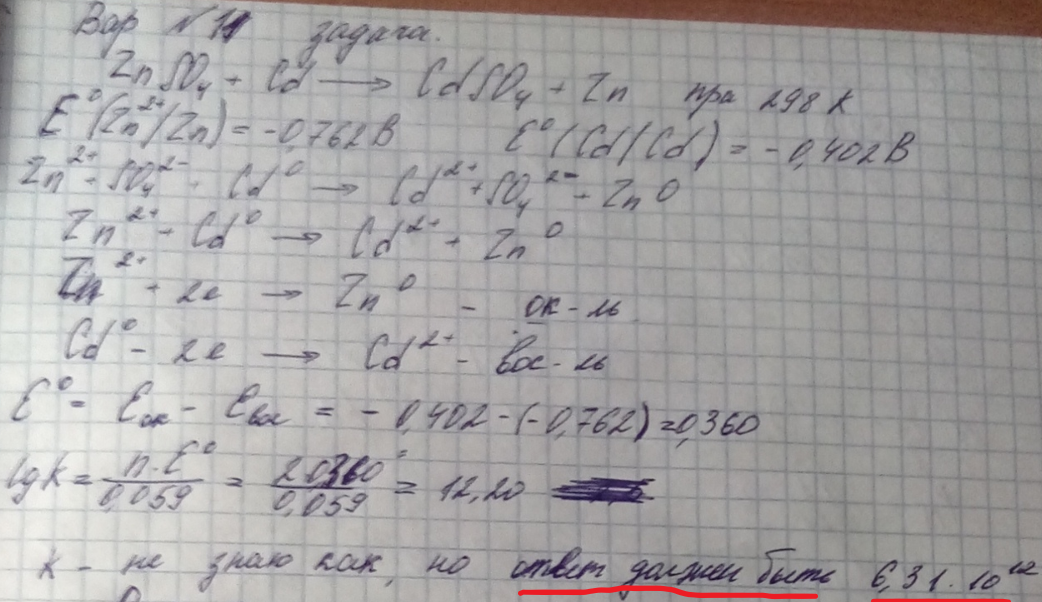 Вар №11 задача.
ZnSO₄ + Cd → CdSO₄ + Zn при 298 K
E⁰(Zn²⁺/Zn) = -0,762 В E⁰(Cd/Cd) = -0,402 В
Zn²⁺ + SO₄²⁻ + Cd⁰ → Cd²⁺ + SO₄²⁻ + Zn 0
Zn²⁺ + Cd⁰ → Cd²⁺ + Zn⁰
Zn²⁺ + 2e → Zn⁰ - ок-ль
Cd⁰ - 2e → Cd²⁺ - вос-ль
E⁰ = Eок - Eвос = -0,402 - (-0,762) = 0,360
lgK = n·E⁰ / 0,059 = 2 0,360 / 0,059 = 12,20
K - не знаю как, но ответ должен быть 6,31·10¹²